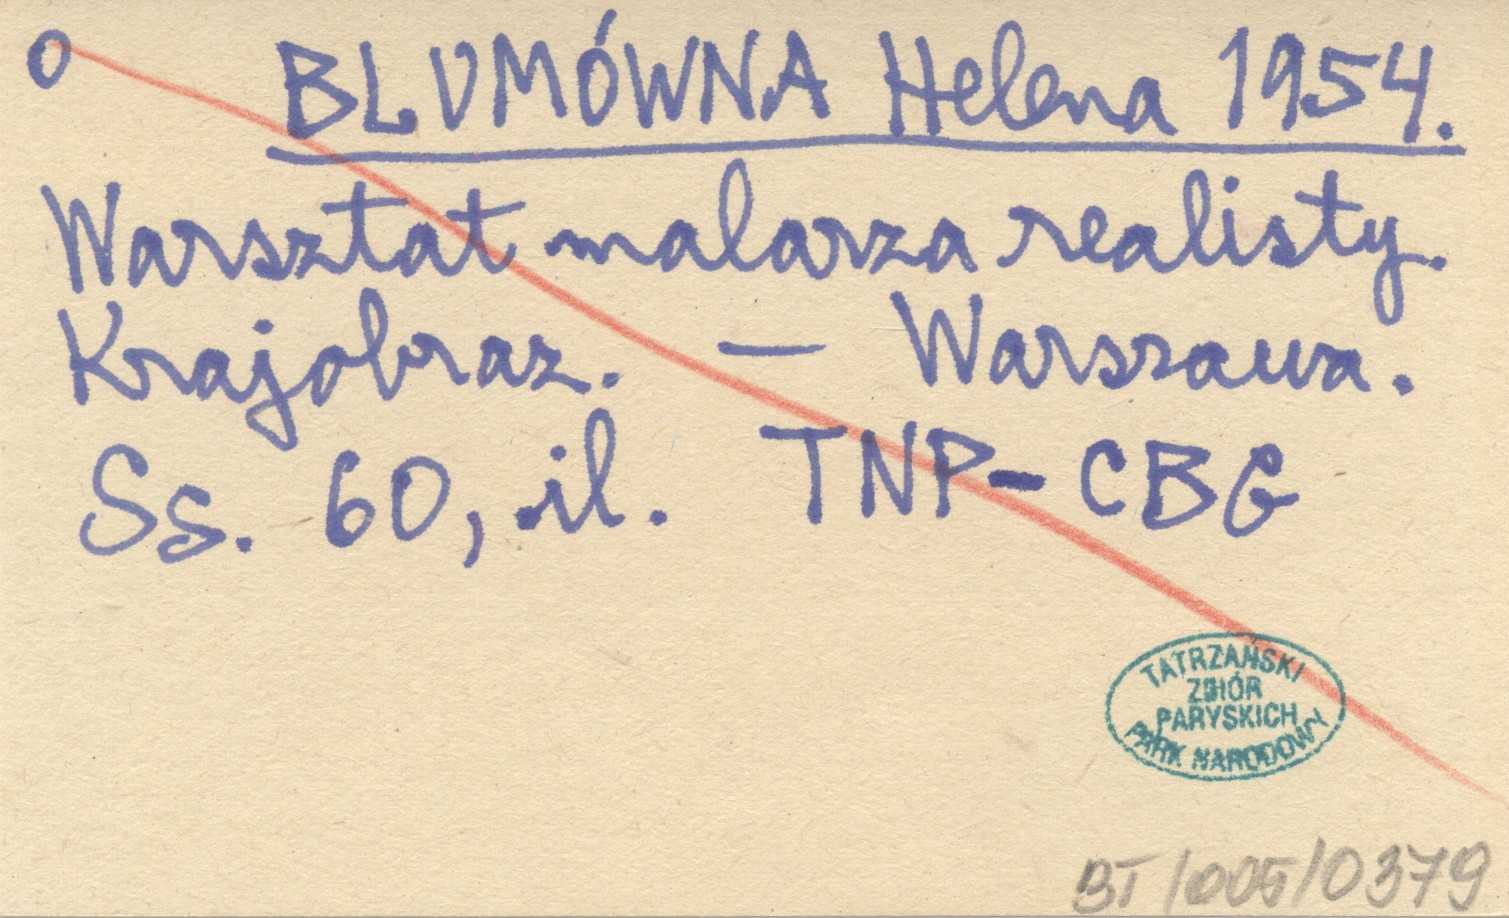 o BLUMÓWNA Helena 1954.
Warsztat malarza realisty.
Krajobraz. — Warszawa.
Ss. 60, il. TNP-CBG
TATRZAŃSKI
ZBIÓR
PARYSKICH
PARK NARODOWY
BT/005/0379